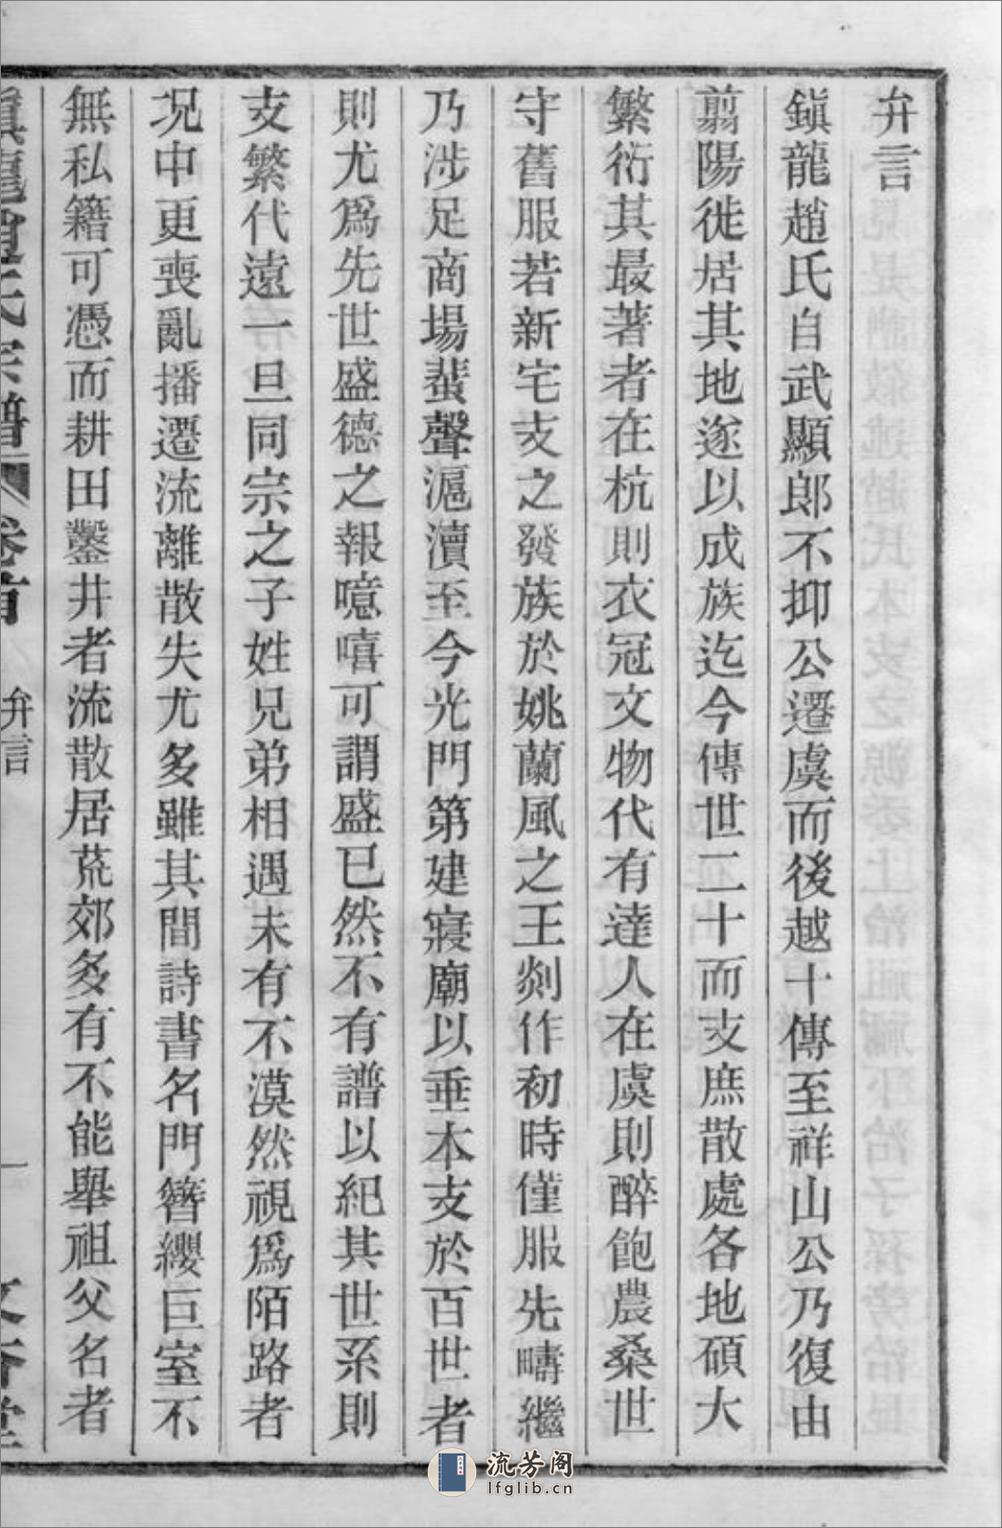 弁言
鎮龍趙氏自武顯郎不抑公遷虞而後越十傳至祥山公乃復由
翦陽徙居其地遂以成族迄今傳世二十而支庶散處各地碩大
繁衍其最著者在杭則衣冠文物代有達人在虞則醉飽農桑世
守舊服若新宅支之發族於姚蘭風之王剡作初時僅服先疇繼
乃涉足商場蜚聲滬瀆至今光門第建寢廟以垂本支於百世者
則尤爲先世盛德之報噫嘻可謂盛已然不有譜以紀其世系則
支繁代遠一旦同宗之子姓兄弟相遇未有不漠然視爲陌路者
況中更喪亂播遷流離散失尤多雖其間詩書名門簪纓巨室不
無私籍可憑而耕田鑿井者流散居荒郊多有不能舉祖父名者
鎮龍趙氏宗譜 卷首 弁言 一
流芳阁
lfglib.cn